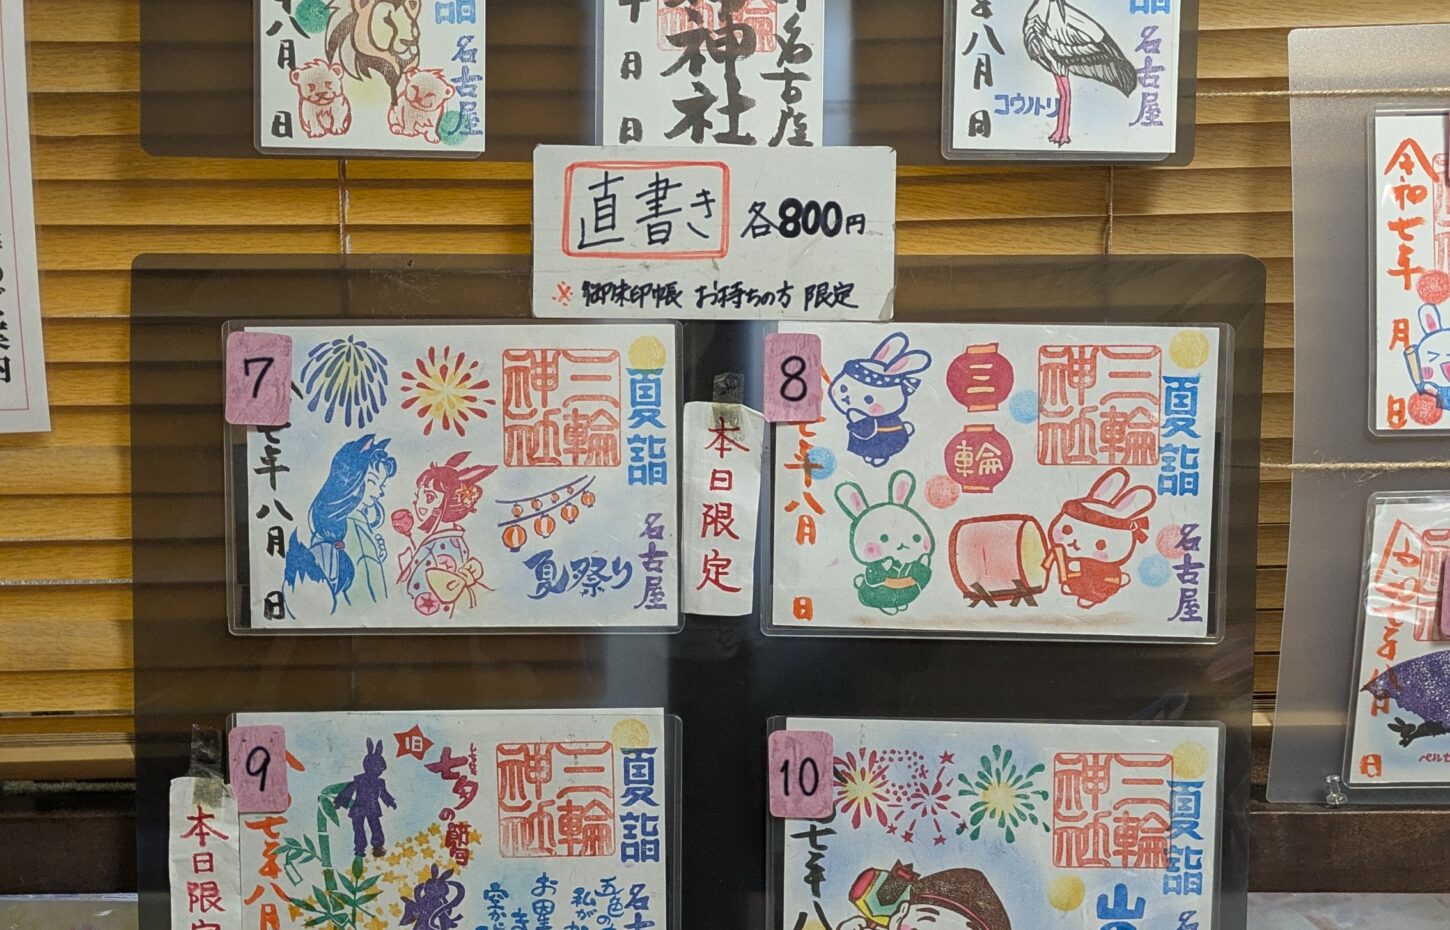 八月
日
詣
名古屋
日
神社
名古屋
月
日
八月
日
コウノトリ
詣
名古屋
直書き 各800円
※御朱印帳 お持ちの方 限定
7
七年 八月 日
三輪
神社
夏詣
夏祭り
名古屋
本日限定
8
七年 八月 日
三
輪
三輪
神社
夏詣
名古屋
本日限
9
七年八月
旧
七夕の節句
三輪
神社
夏詣
五色の
私が
お星
き
空か
10
七年 八
三輪
神社
夏詣
山の
令和七年 月 日
日
ペルセ
案内